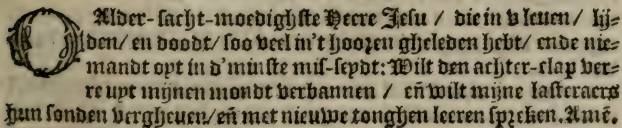 O Alder-sacht-moedighste Heere Jesu / die in u leven / lij-
den / en doodt / soo veel in't hooren gheleden hebt / ende nie-
mandt oyt in d'minste mis-seydt: Wilt den achter-clap ver-
re uyt mijnen mondt verbannen / eñ wilt mijne lasteraers
hun sonden vergheven / eñ met nieuwe tonghen leeren spreken. Amē.